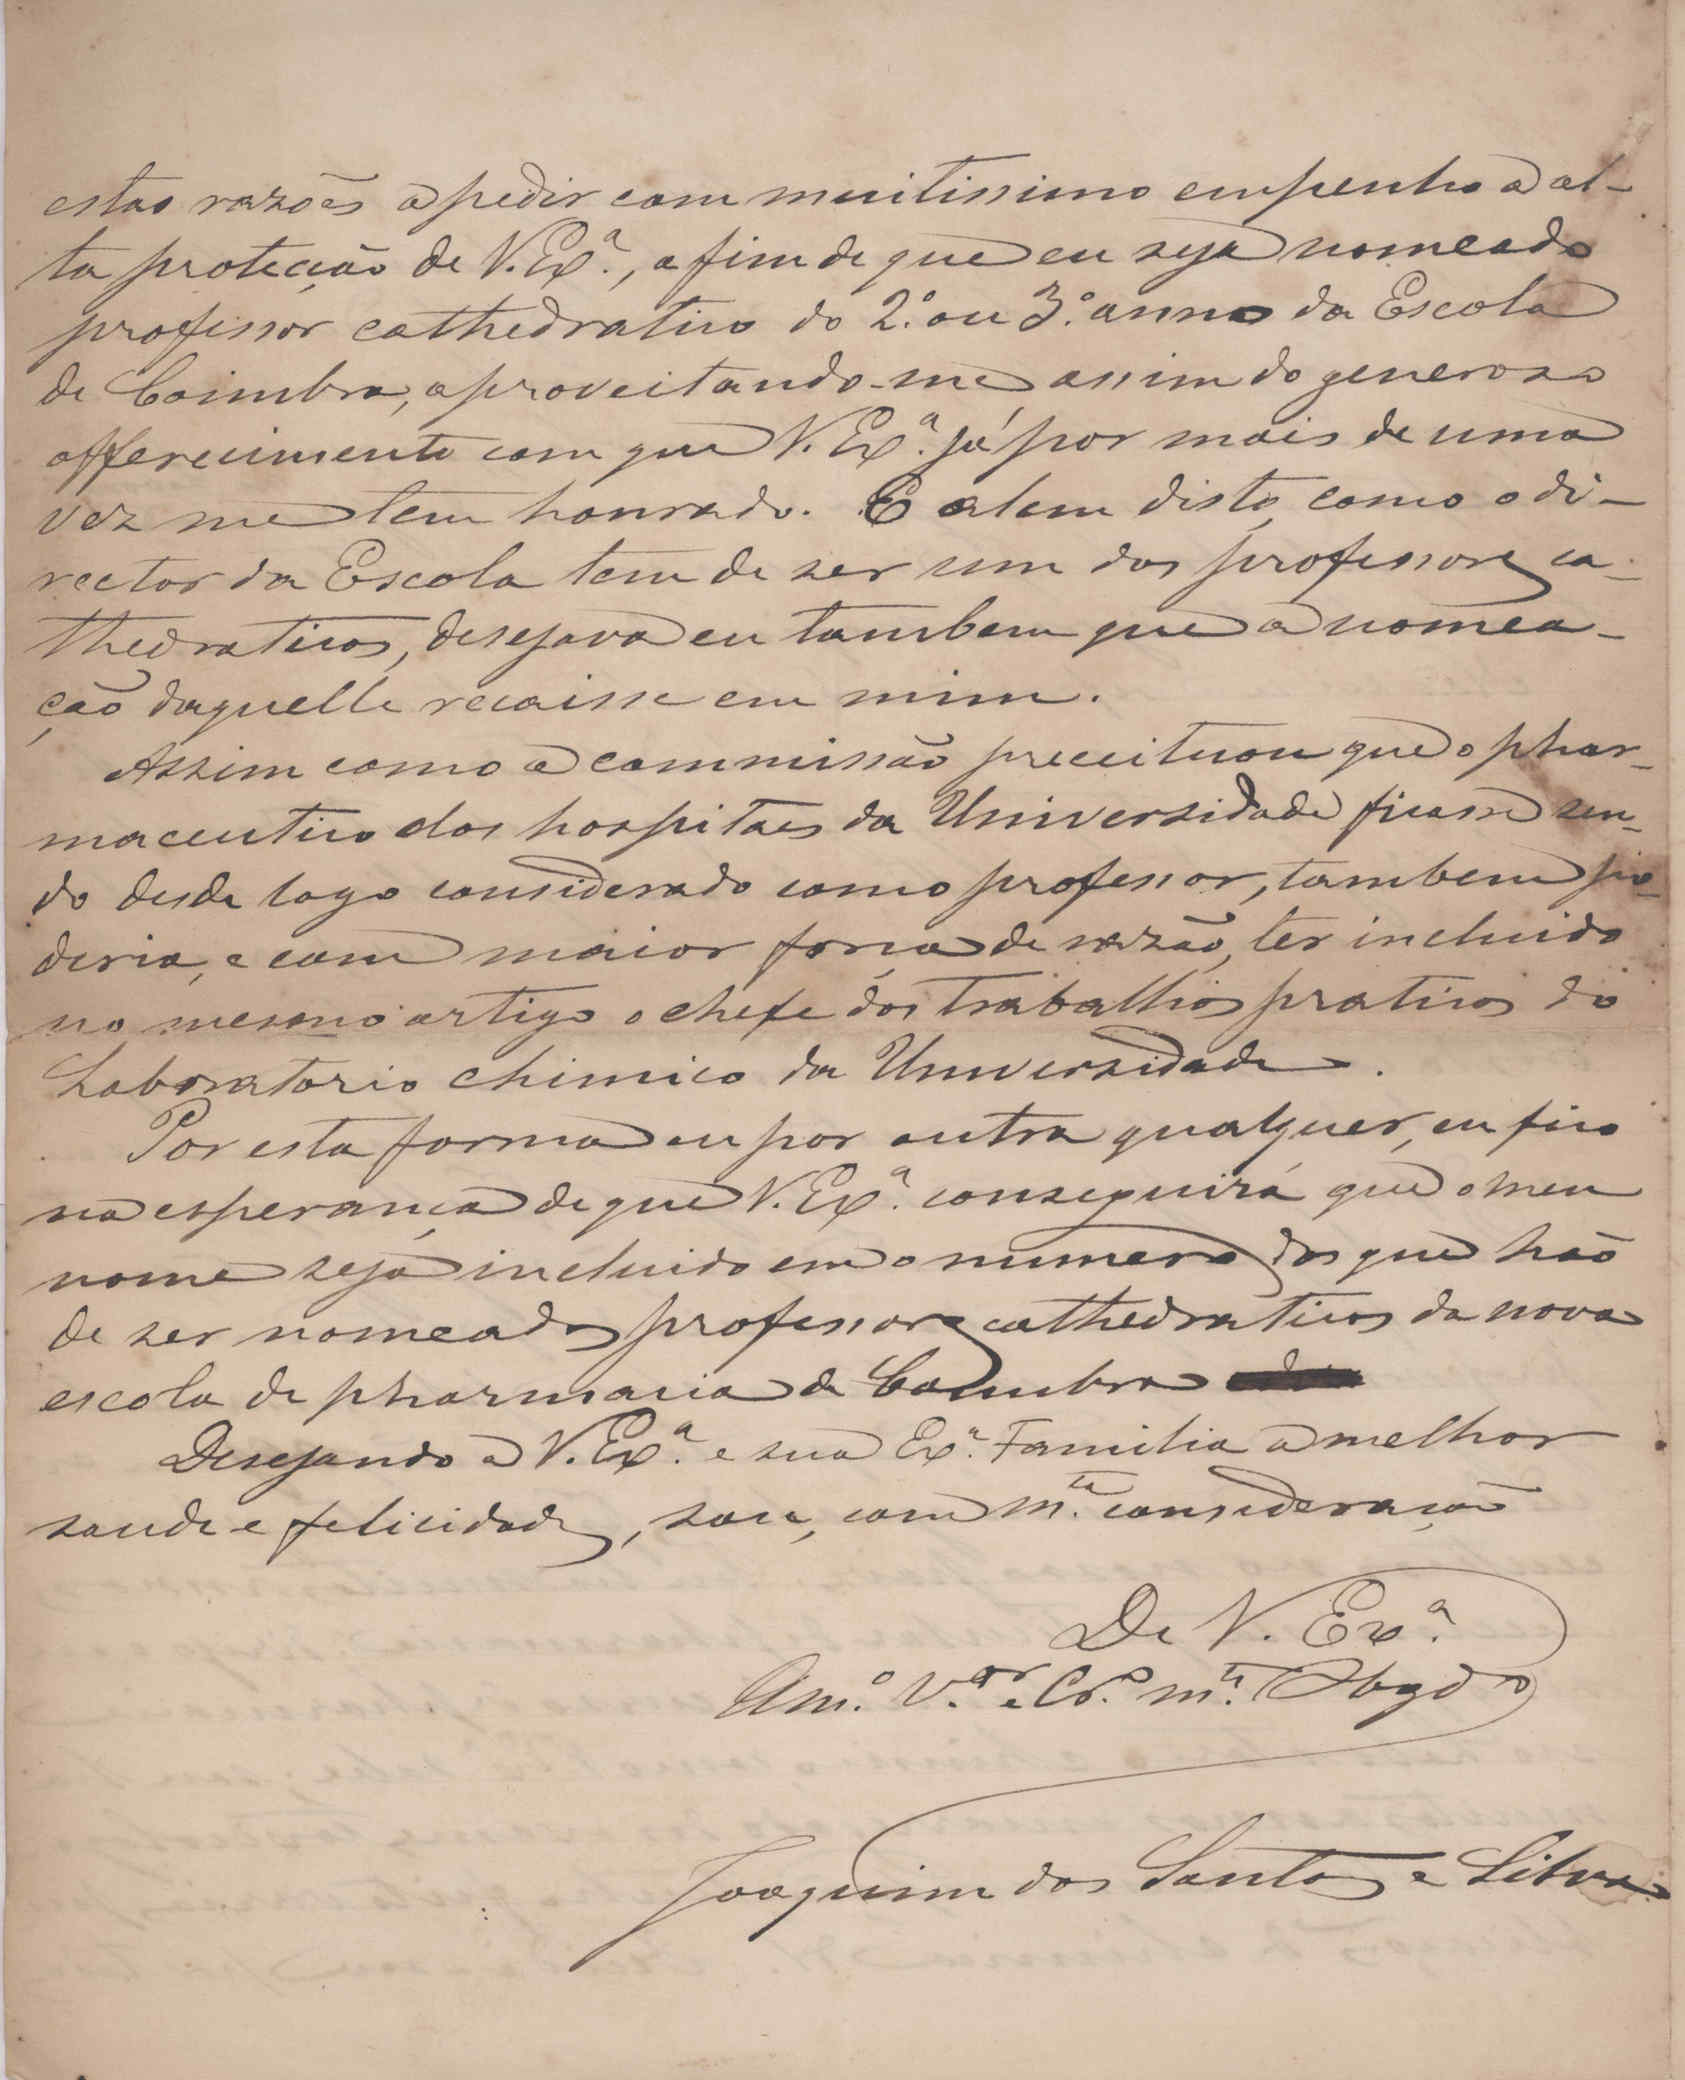 estas razões a pedir com muitissimo empenho a al-
ta protecção de V. Ex.ª, a fim de que eu seja nomeado
professor cathedratico do 2.º ou 3.º anno da Escola
de Coimbra, aproveitando-me assim do generoso
offerecimento com que V. Ex.ª já por mais de uma
vez me tem honrado. E alem disto, como o di-
rector da Escola tem de ser um dos professores ca-
thedraticos, desejava eu tambem que a nomea-
ção daquelle recaisse em mim.
Assim como a commissão preceituou que o phar-
maceutico dos hospitaes da Universidade ficasse sen-
do desde logo considerado como professor, tambem po-
deria, e com maior força de razão, ter incluido
no mesmo artigo o chefe dos trabalhos praticos do
Laboratorio chimico da Universidade.
Por esta forma ou por outra qualquer, eu fico
na esperança de que V. Ex.ª conseguirá que o meu
nome seja incluido em o numero dos que hão
de ser nomeados professores cathedraticos da nova
escola de pharmacia de Coimbra
Desejando a V. Ex.ª e sua Ex.ª Familia a melhor
saude e felicidades, sou, com m.ta consideração
De V. Ex.ª
Am.º V.or e Cr.º m.to Obgdo
Joaquim dos Santos e Silva